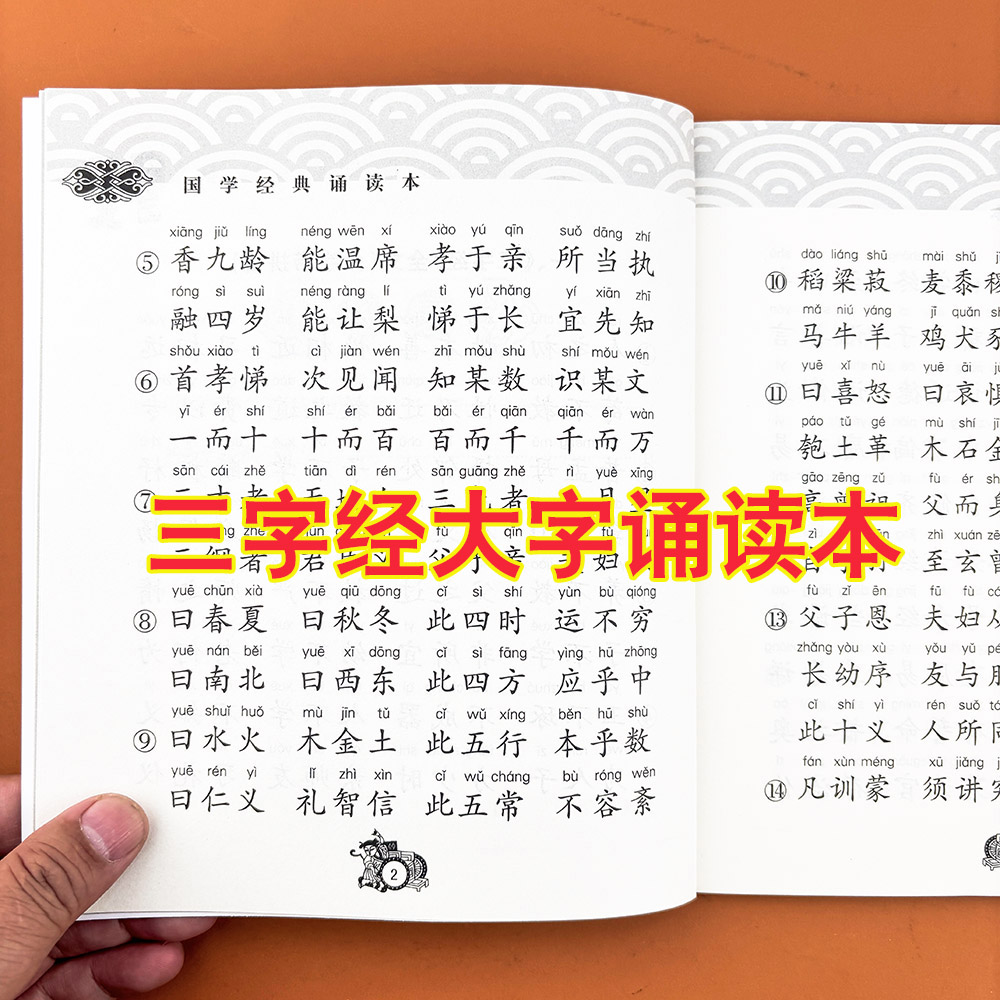 国学经典诵读本
xiāng jiǔ líng néng wēn xí xiào yú qīn suǒ dāng zhí
⑤ 香九龄 能温席 孝于亲 所当执
róng sì suì néng ràng lí tì yú zhǎng yí xiān zhī
融四岁 能让梨 悌于长 宜先知
shǒu xiào tì cì jiàn wén zhī mǒu shù shí mǒu wén
⑥ 首孝悌 次见闻 知某数 识某文
yī ér shí shí ér bǎi bǎi ér qiān qiān ér wàn
一而十 十而百 百而千 千而万
sān cái zhě tiān dì rén sān guāng zhě rì yuè xīng
⑦ 者 三 者
者 妇
yuē chūn xià yuē qiū dōng cǐ sì shí yùn bù qióng
⑧ 曰春夏 曰秋冬 此四时 运不穷
yuē nán běi yuē xī dōng cǐ sì fāng yìng hū zhōng
曰南北 曰西东 此四方 应乎中
yuē shuǐ huǒ mù jīn tǔ cǐ wǔ xíng běn hū shù
⑨ 曰水火 木金土 此五行 本乎数
yuē rén yì lǐ zhì xìn cǐ wǔ cháng bù róng wěn
曰仁义 礼智信 此五常 不容紊
2
dào liáng shū mài shǔ
⑩ 稻粱菽 麦黍稷
mǎ niú yáng jī quǎn
马牛羊 鸡犬豕
yuē xǐ nù yuē āi
⑪ 曰喜怒 曰哀惧
páo tǔ gé mù shí
匏土革 木石金
gāo zēng zǔ fù ér
父而身
zhì xuán
至玄曾
fù zǐ ēn fū fù
⑬ 父子恩 夫妇从
zhǎng yòu xù yǒu yǔ
长幼序 友与朋
cǐ shí yì rén suǒ
此十义 人所同
fán xùn méng xū jiǎng
⑭ 凡训蒙 须讲究
三字经大字诵读本